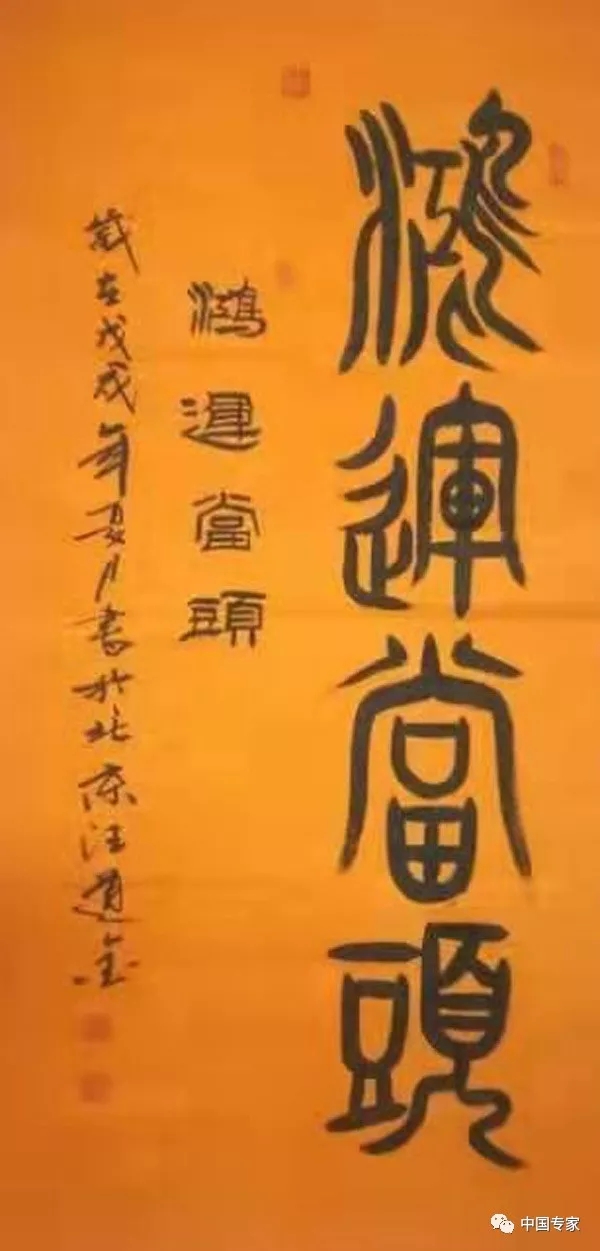 鴻運當頭
鴻運當頭
歲在戊戌年夏月書於北京汪道金
中国专家